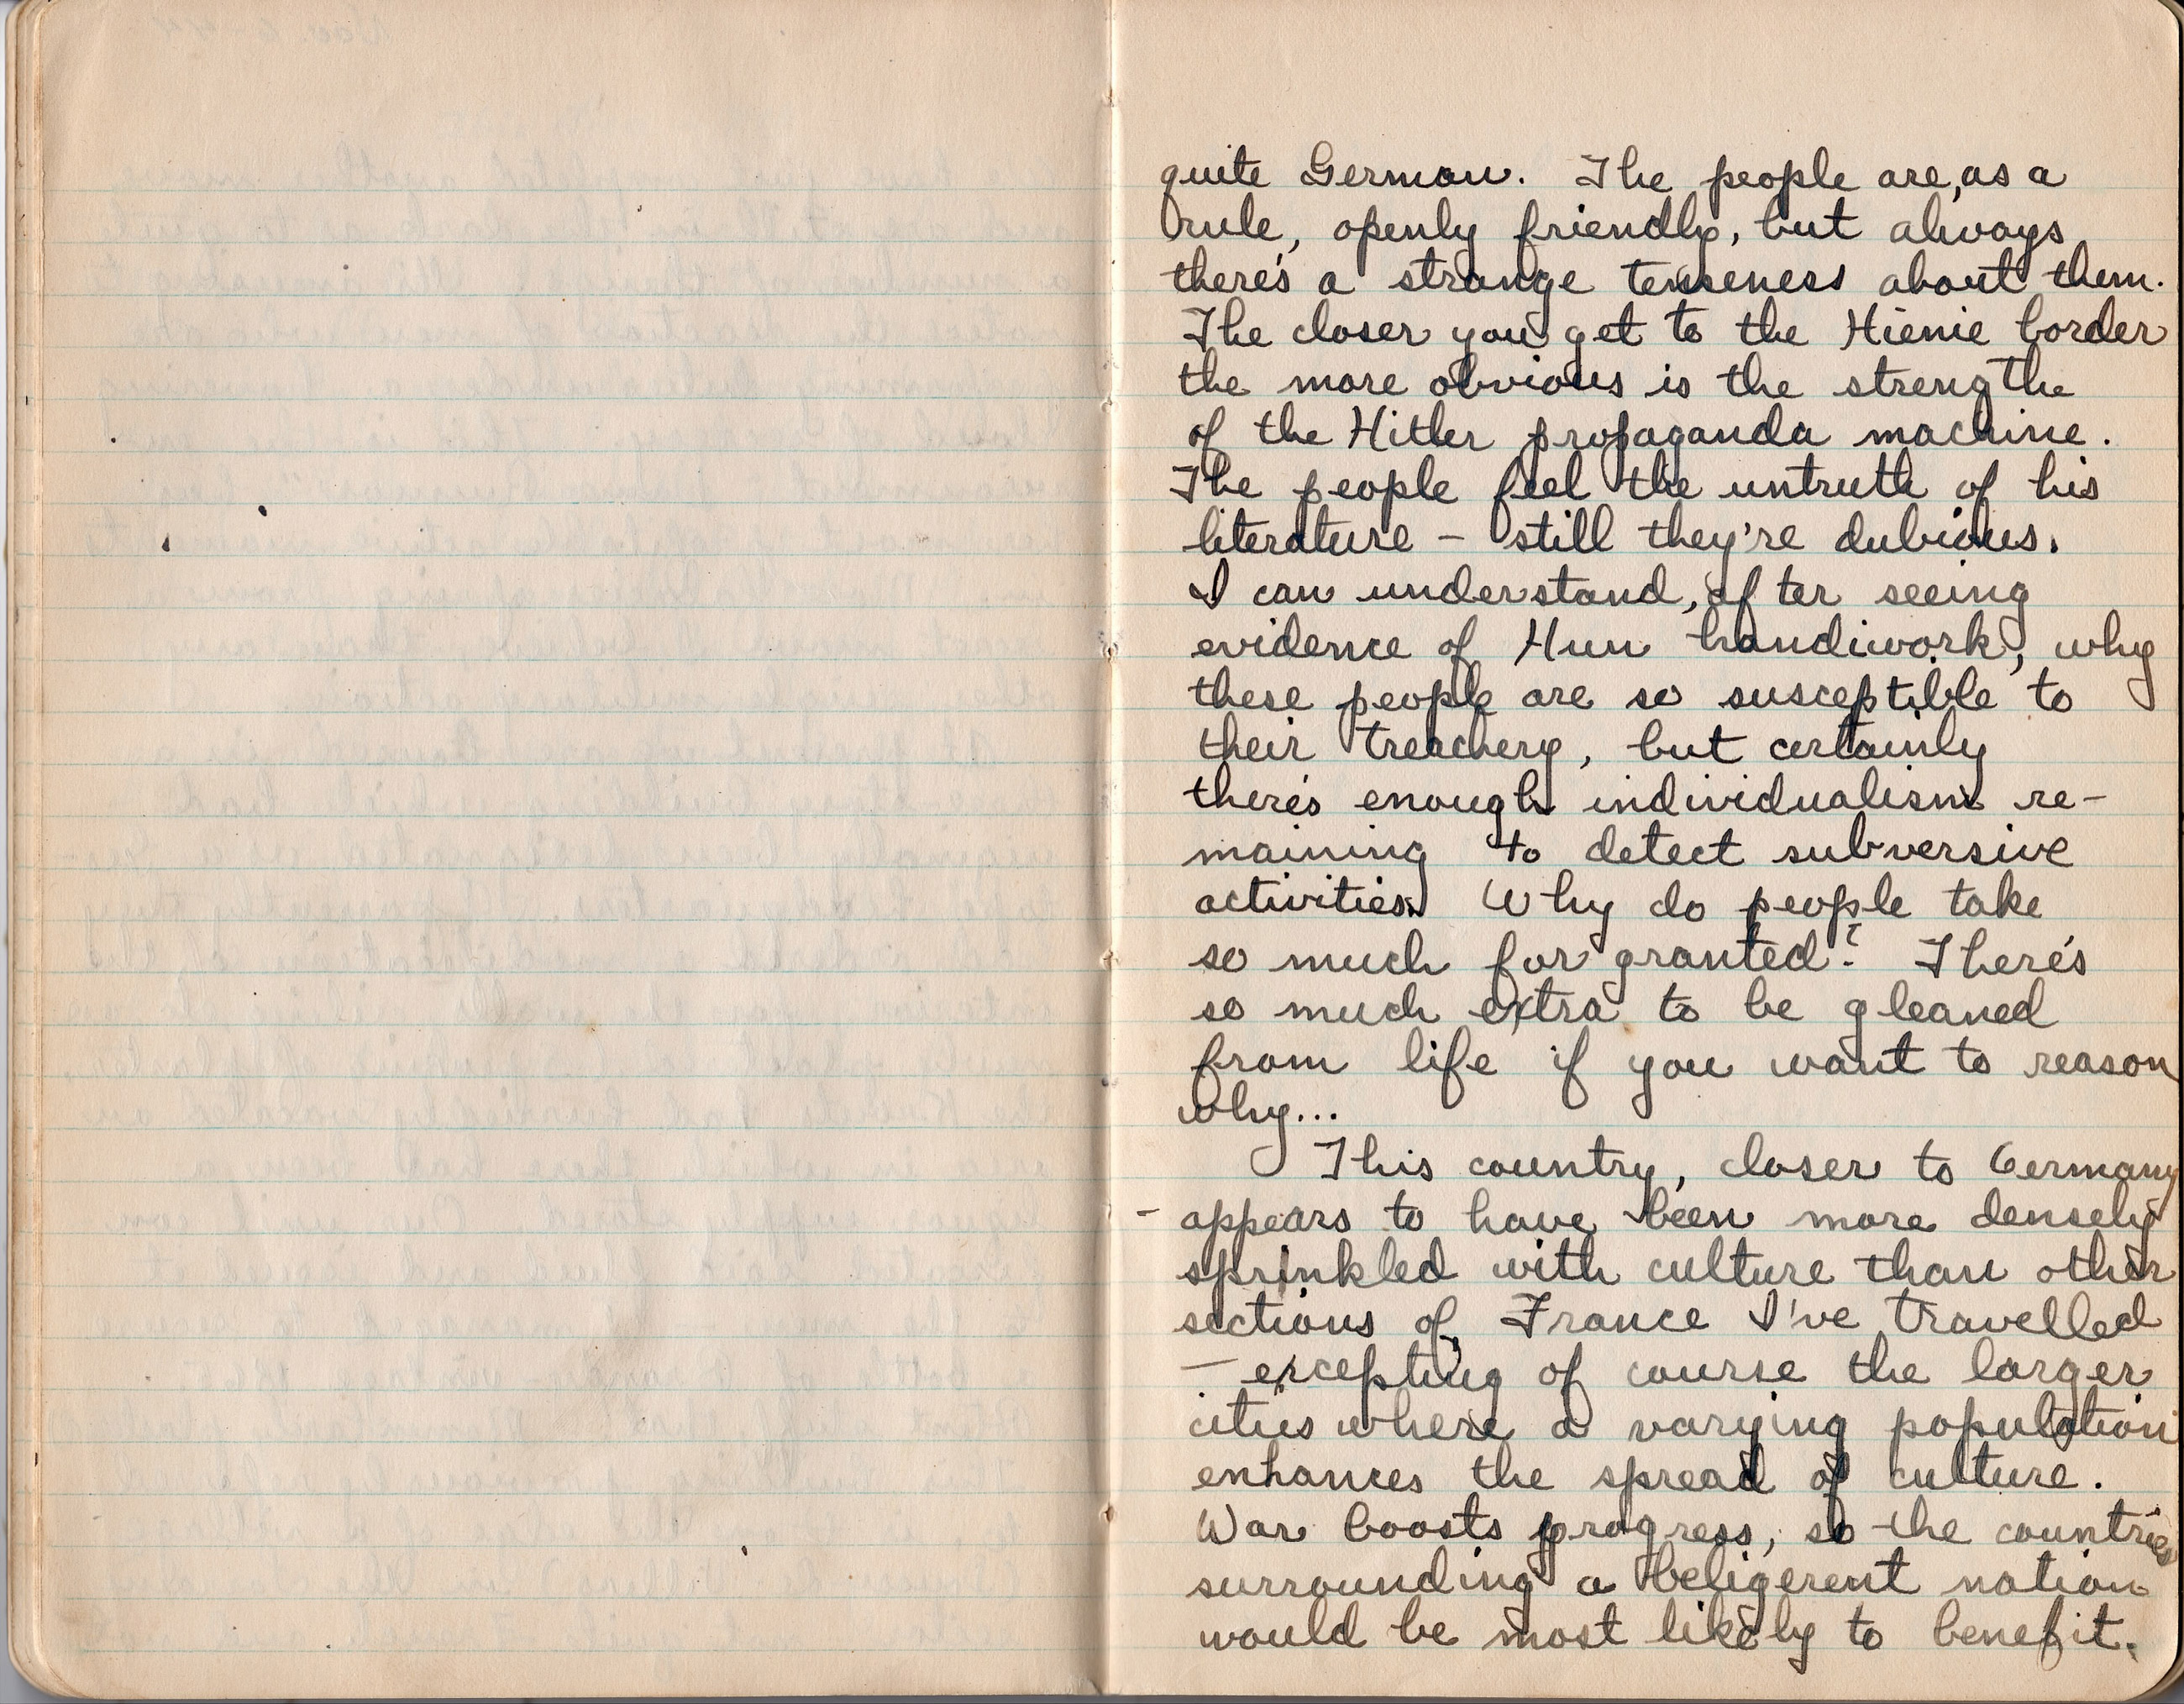 quite German. The people are, as a
rule, openly friendly, but always
there's a strange tenseness about them.
The closer you get to the Hienie border
the more obvious is the strengthe
of the Hitler propaganda machine.
The people feel the untruth of his
literature - still they're dubious.
I can understand, after seeing
evidence of Hun handiwork, why
these people are so susceptible to
their treachery, but certainly
there's enough individualism re-
maining to detect subversive
activities. Why do people take
so much for granted? There's
so much extra to be gleaned
from life if you want to reason
why...
This country, closer to Germany
- appears to have been more densely
sprinkled with culture than other
sections of France I've travelled
- excepting of course the larger
cities where a varying population
enhances the spread of culture.
War boosts progress, so the countries
surrounding a beligerent nation
would be most likely to benefit.